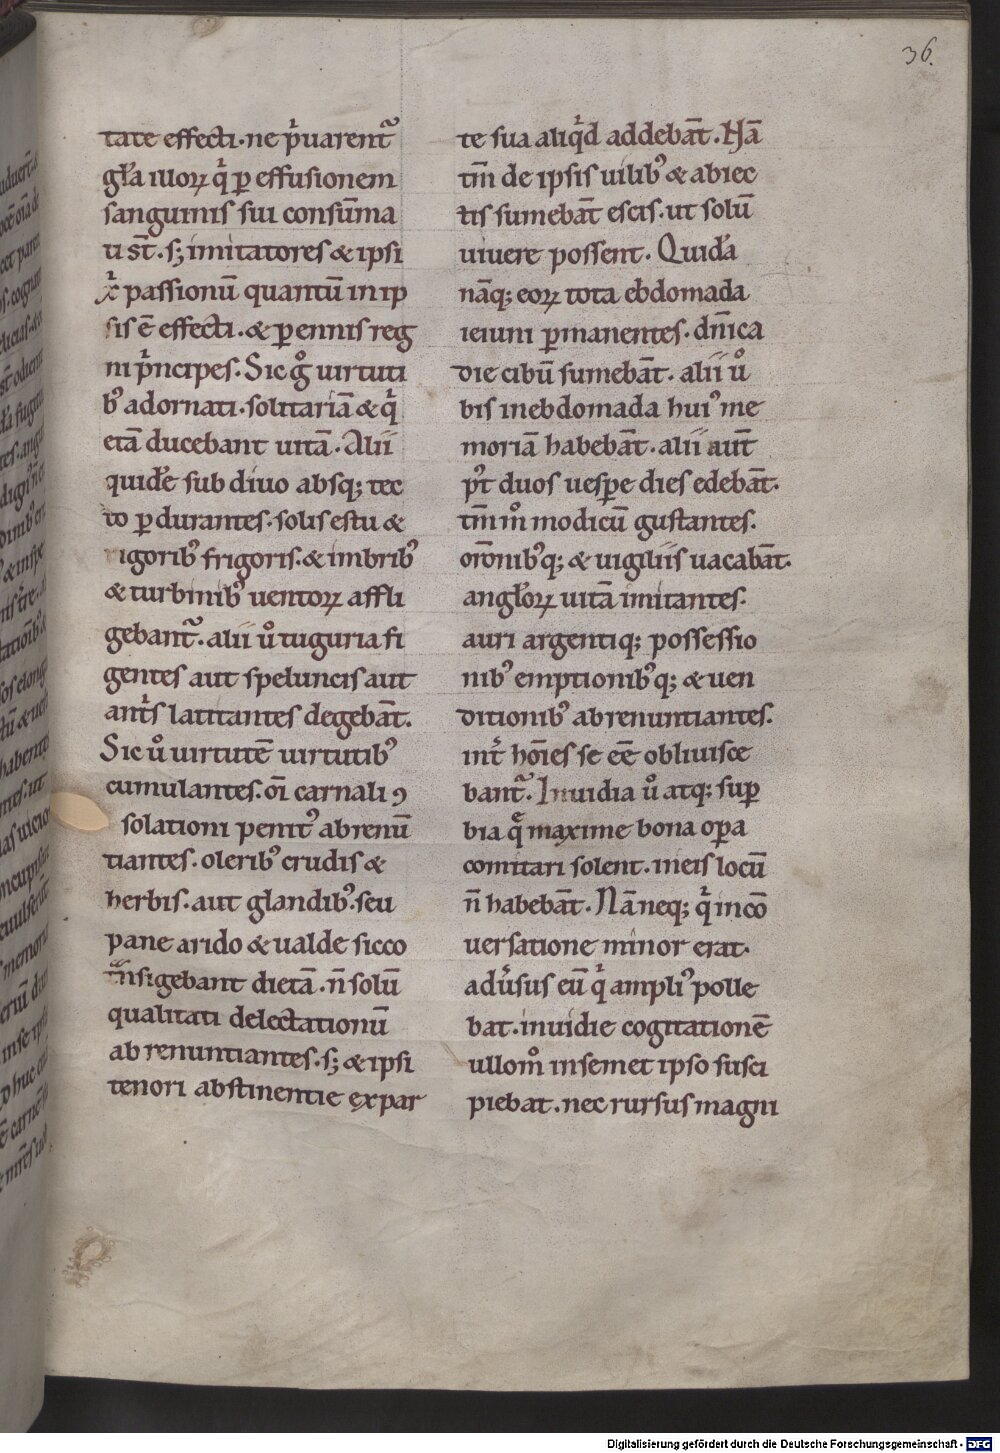 36.
tate effecti. ne p̾uarent᷑
gła illoꝝ q̾ ꝑ effusionem
sanguinis sui consūma
ti st̄. s; imitatores & ipsi
xp̄i passionū quantū in ip
sis ē effecti. & ꝑennis reg
ni p̾ncipes. Sic gͦ uirtuti
bꝰ adornati. solitariā & q̾
etā ducebant uitā. Alii
quidē sub diuo absq; tec
to ꝑdurantes. solis estu &
rigoribꝰ frigoris. & imbribꝰ
& turbinibꝰ uentoꝝ affli
gebant᷑. alii uͦ tuguria fi
gentes aut speluncis aut
antͥs latitantes degebāt.
Sic uͦ uirtutē uirtutibꝰ
cumulantes. oī carnali ꝯ
solationi penitꝰ abrenū
tiantes. oleribꝰ crudis &
herbis. aut glandibꝰ. seu
pane arido & ualde sicco
tͣnsigebant dietā. n̄ solū
qualitati delectationū
abrenuntiantes. s; & ipsi
tenori abstinentie ex par
te sua aliqͥd addebāt. Hā
tm̄ de ipsis uilibꝰ & abiec
tis sumebāt escis. ut solū
uiuere possent. Quidā
nāq; eoꝝ tota ebdomada
ieiuni ꝑmanentes. dn̄ica
die cibū sumebāt. alii uͦ
bis in ebdomada huiꝰ me
moriā habebāt. alii aut̄
p̾t duos uesꝑe dies edebāt.
tm̄mͦ modicū gustantes.
orōnibꝰq; & uigiliis uacabāt.
angłoꝝ uitā imitantes.
auri argentiq; possessio
nibꝰ emptionibꝰq; & uen
ditionibꝰ abrenuntiantes.
int̾ hōies se eē obliuisce
bant᷑. Inuidia uͦ atq; suꝑ
bia q̄ maxime bona oꝑa
comitari solent. in eis locū
n̄ habebāt. Nā neq; qͥ in cō
uersatione minor erat.
adu̾sus eū qͥ ampliꝰ polle
bat. inuidie cogitationē
ullomͦ in semet ipso susci
piebat. nec rursus magni
Digitalisierung gefördert durch die Deutsche Forschungsgemeinschaft - DFG